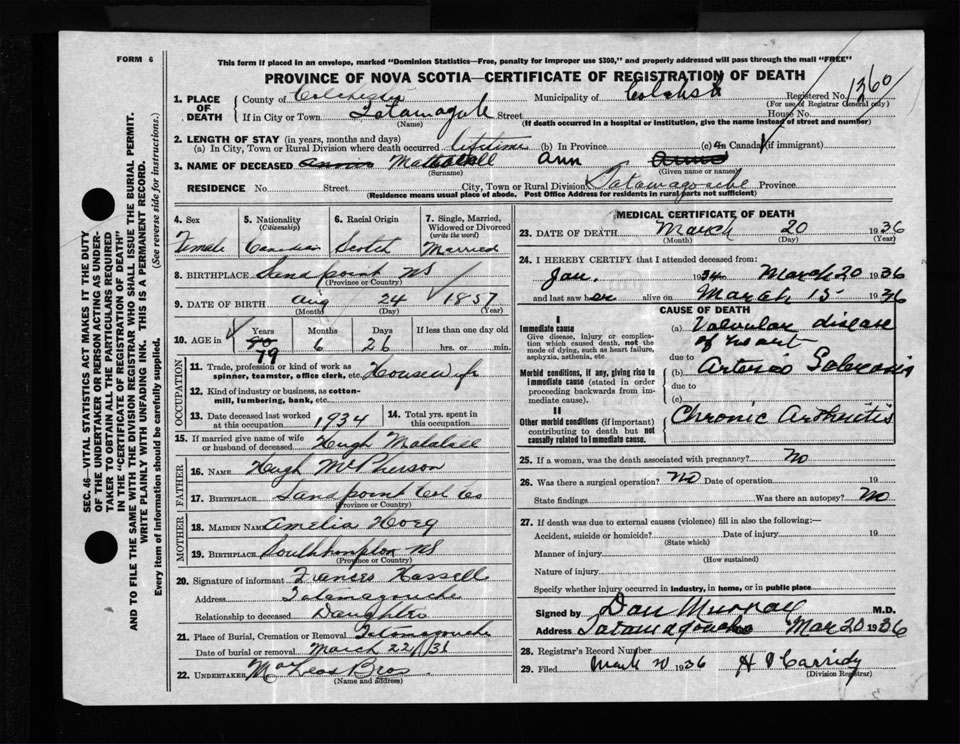 FORM 6
This form if placed in an envelope, marked "Dominion Statistics—Free, penalty for improper use $300," and properly addressed will pass through the mail "FREE"
PROVINCE OF NOVA SCOTIA—CERTIFICATE OF REGISTRATION OF DEATH
1. PLACE OF DEATH County of Colchester Municipality of Registered No. 1360
(For use of Registrar General only)
If in City or Town Street House No.
(Name) (If death occurred in a hospital or institution, give the name instead of street and number)
2. LENGTH OF STAY (in years, months and days)
(a) In City, Town or Rural Division where death occurred lifetime (b) In Province (c) In Canada (if immigrant)
3. NAME OF DECEASED Ann
(Surname) (Given name or names)
RESIDENCE No. Street City, Town or Rural Division Tatamagouche Province
(Residence means usual place of abode. Post Office Address for residents in rural parts not sufficient)
4. Sex 5. Nationality 6. Racial Origin 7. Single, Married,
(Citizenship) Widowed or Divorced
(write the word)
Female Canadian Scotch Married
8. BIRTHPLACE Sandpoint NS
(Province or Country)
9. DATE OF BIRTH Aug 24 1857
(Month) (Day) (Year)
10. AGE in Years Months Days If less than one day old
79 6 26 hrs. or min.
OCCUPATION
11. Trade, profession or kind of work as
spinner, teamster, office clerk, etc. Housewife
12. Kind of industry or business, as cotton-
mill, lumbering, bank, etc.
13. Date deceased last worked 14. Total yrs. spent in
at this occupation 1934 this occupation
15. If married give name of wife
or husband of deceased Hugh
FATHER
16. NAME Hugh McPherson
17. BIRTHPLACE Sandpoint Col Co
(Province or Country)
MOTHER
18. MAIDEN NAME Amelia Hoeg
19. BIRTHPLACE Southhampton NS
(Province or Country)
20. Signature of informant Frances Hassell
Address Tatamagouche
Relationship to deceased Daughter
21. Place of Burial, Cremation or Removal Tatamagouche
Date of burial or removal March 22/36
22. UNDERTAKER McLeod Bros
(Name and address)
MEDICAL CERTIFICATE OF DEATH
23. DATE OF DEATH March 20 1936
(Month) (Day) (Year)
24. I HEREBY CERTIFY that I attended deceased from:
Jan. 1934 March 20 1936
and last saw her alive on March 15 1936
CAUSE OF DEATH
I
Immediate cause (a) Valvular disease
Give disease, injury or complica-
tion which caused death, not the of heart
mode of dying, such as heart failure,
asphyxia, asthenia, etc. due to
Morbid conditions, if any, giving rise to (b)
immediate cause (stated in order due to
proceeding backwards from im-
mediate cause). (c)
II
Other morbid conditions (if important) Chronic Arthritis
contributing to death but not
causally related to immediate cause.
25. If a woman, was the death associated with pregnancy? No
26. Was there a surgical operation? No Date of operation 19
State findings Was there an autopsy? No
27. If death was due to external causes (violence) fill in also the following:—
Accident, suicide or homicide? Date of injury 19
(State which)
Manner of injury
(How sustained)
Nature of injury
Specify whether injury occurred in industry, in home, or in public place
Signed by Dan Murray M.D.
Address Tatamagouche Mar 20 1936
28. Registrar's Record Number
29. Filed 1936
(Division Registrar)
SEC. 46—VITAL STATISTICS ACT MAKES IT THE DUTY
OF THE UNDERTAKER OR PERSON ACTING AS UNDER-
TAKER TO OBTAIN ALL THE PARTICULARS REQUIRED
IN THE "CERTIFICATE OF REGISTRATION OF DEATH"
AND TO FILE THE SAME WITH THE DIVISION REGISTRAR WHO SHALL ISSUE THE BURIAL PERMIT.
WRITE PLAINLY WITH UNFADING INK. THIS IS A PERMANENT RECORD.
Every item of information should be carefully supplied. (See reverse side for instructions.)